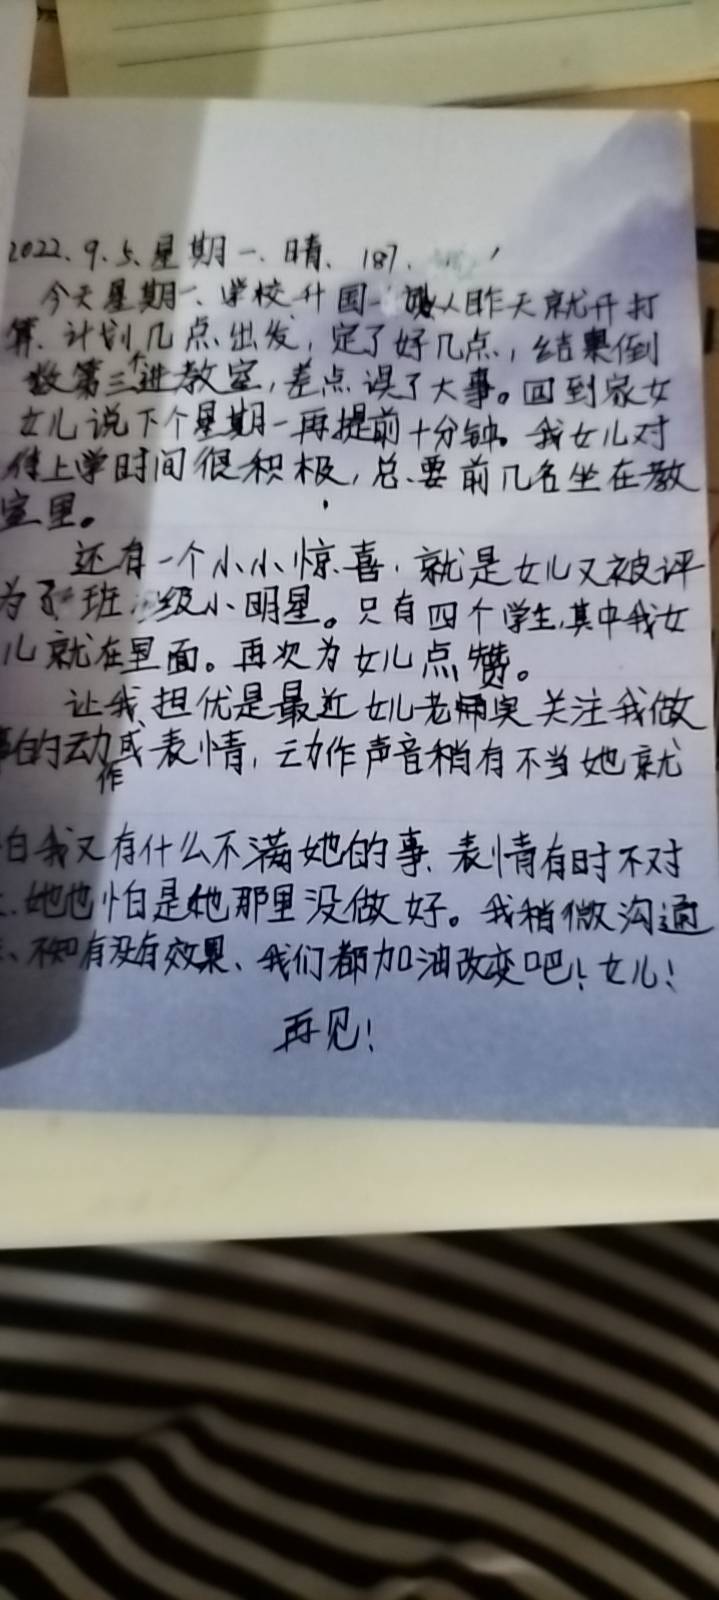 2022.9.5.星期一、晴、187.
今天星期一、学校升国 从昨天就开打
算、计划几点出发，定了好几点，结果倒
数第三个进教室，差点误了大事。回到家女
女儿说下个星期一再提前十分钟。我女儿对
待上学时间很积极，总要前几名坐在教
室里。
还有一个小小惊喜，就是女儿又被评
为了班级小明星。只有四个学生，其中我女
儿就在里面。再次为女儿点赞。
让我担优是最近女儿老 关注我做
事的动作或表情，动作声音稍有不当她就
怕我又有什么不满她的事、表情有时不对
她也怕是她那里没做好。我稍微沟通
、不知有没有效果、我们都加油改变吧！女儿！
再见！